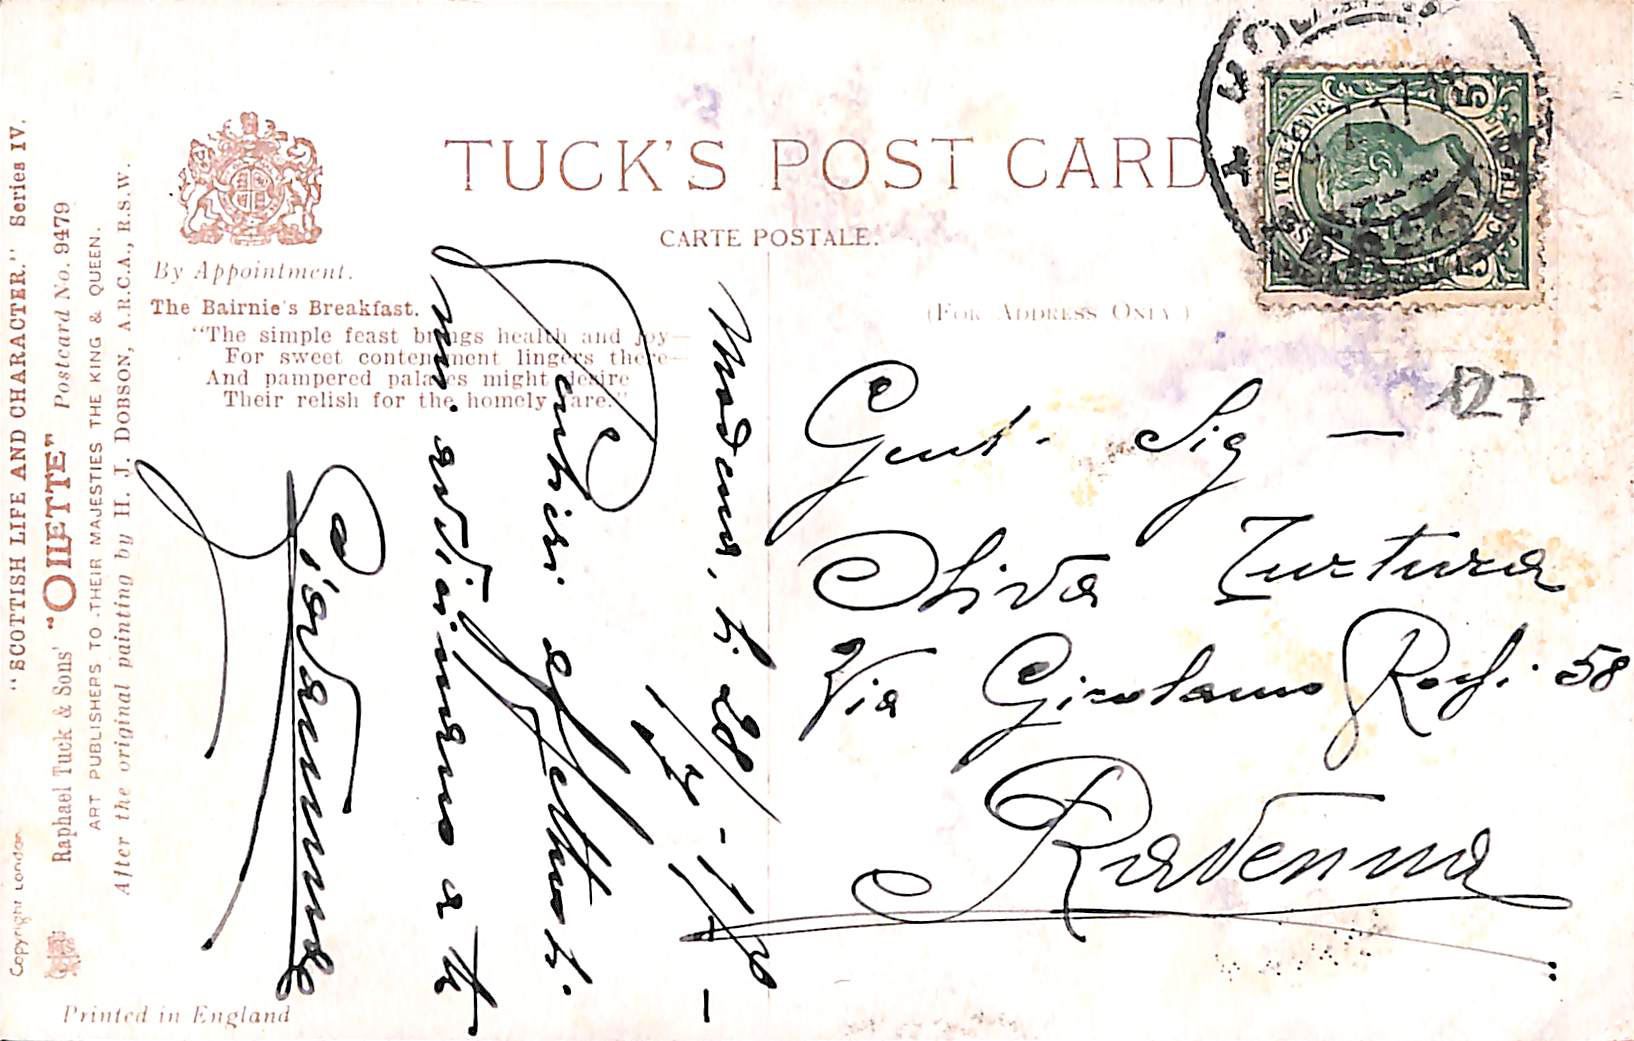 TUCK'S POST CARD
CARTE POSTALE.
(FOR ADDRESS ONLY)
By Appointment.
The Bairnie's Breakfast.
"The simple feast brings health and joy—
For sweet contentment lingers there—
And pampered palaces might desire
Their relish for the homely fare."
"SCOTTISH LIFE AND CHARACTER." Series IV.
Raphael Tuck & Sons' "OILETTE" Postcard No. 9479
ART PUBLISHERS TO THEIR MAJESTIES THE KING & QUEEN.
After the original painting by H. J. DOBSON, A.R.C.A., R.S.W.
Copyright London
Printed in England
Modena, li 28
Pensieri affettuosi.
a te
Giovanni
Gent. Sig —
Oliva Turtura
Via Girolamo Rossi 58
Ravenna
127
POSTE ITALIANE
5